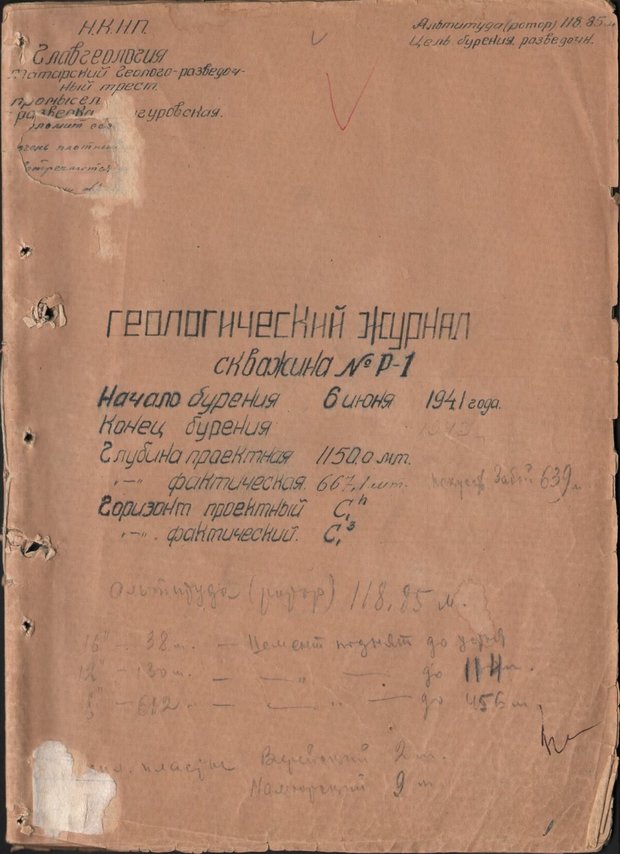 Н.К.Н.П.
Главгеология
Татарский Геолого-разведоч-
ный трест.
промысел
разведка
Альтитуда (ротор) 118.85 м
Цель бурения. разведочн.
плотн
встречается
Геологический журнал
скважина № Р-1
Начало бурения 6 июня 1941 года.
Конец бурения
Глубина проектная 1150,0 мт.
-"- фактическая. 667,1 мт. искусств Забой 639 м
Горизонт проектный C₁ʰ
-"-. фактический. C₁³
Альтитуда (ротор) 118,85 м.
16" – 38 м. – Цемент поднят до устья
12" – 130 м. – — " — до 114 м.
8" – 612 м – — " — до 456 м
пласты Верейский 2 м.
Намюрский 9 м